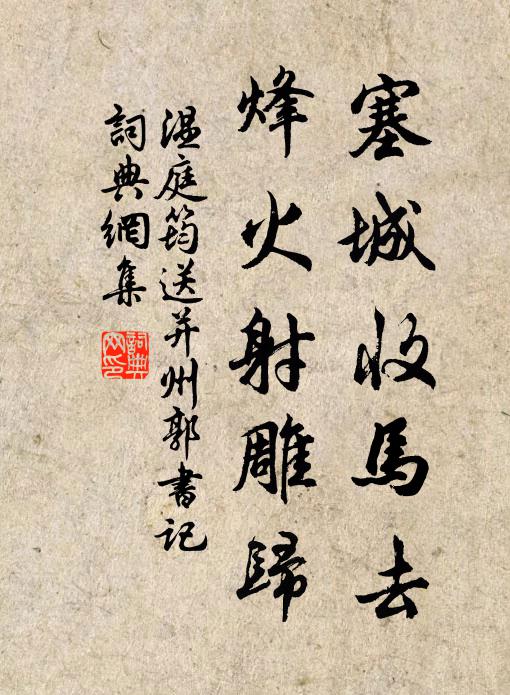 塞城收馬去
烽火射雕歸
溫庭筠送并州郭書記
詞典網集
詞典网印